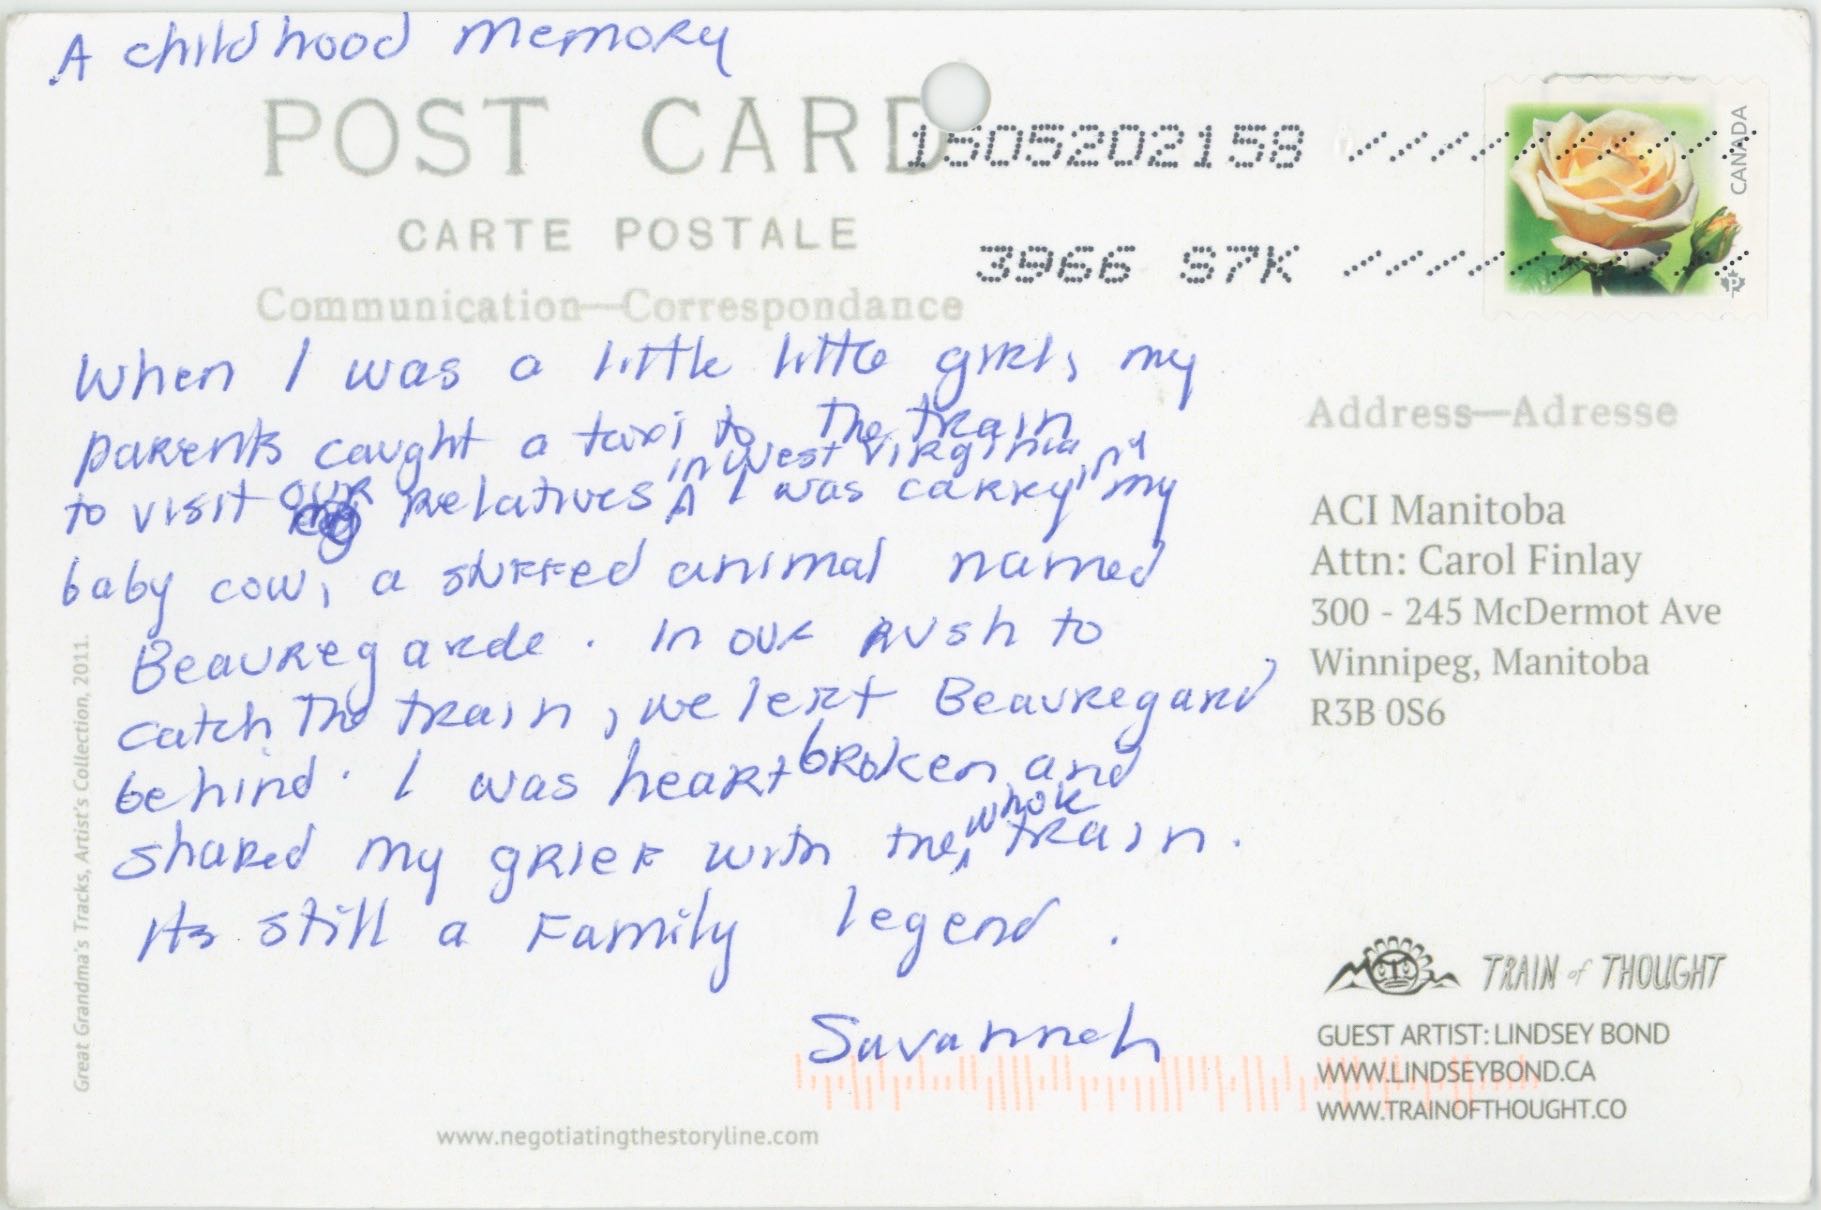 A childhood memory
POST CARD
1505202158
CANADA
CARTE POSTALE
3966 S7K
P
Communication—Correspondance
When I was a little little girl, my
parents caught a taxi to the train
in West Virginia
to visit our relatives ^ I was carrying my
baby cow, a stuffed animal named
Beauregarde. In our rush to
catch the train, we left Beauregard
behind. I was heartbroken and
whole
shared my grief with the ^ train.
Its still a Family legend.
Savannah
Address—Adresse
ACI Manitoba
Attn: Carol Finlay
300 - 245 McDermot Ave
Winnipeg, Manitoba
R3B 0S6
Great Grandma's Tracks, Artist's Collection, 2011.
TRAIN of THOUGHT
GUEST ARTIST: LINDSEY BOND
WWW.LINDSEYBOND.CA
WWW.TRAINOFTHOUGHT.CO
www.negotiatingthestoryline.com